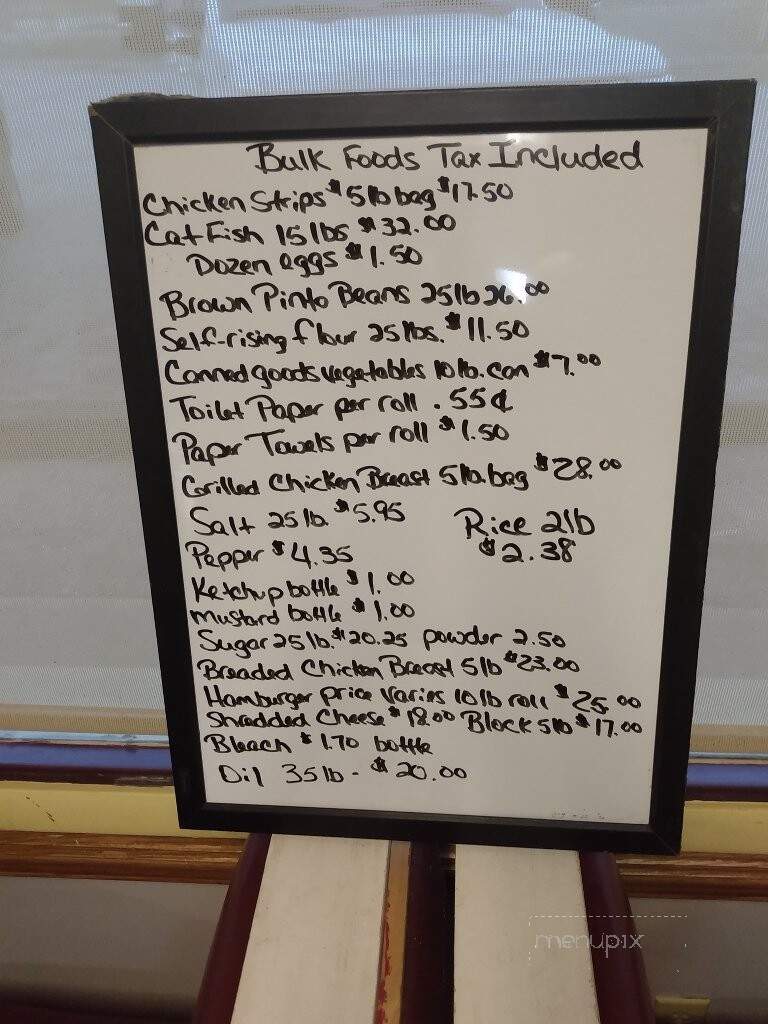 Bulk Foods Tax Included
Chicken Strips $ 5lb bag $17.50
Cat Fish 15 lbs $32.00
Dozen eggs $1.50
Brown Pinto Beans 25lb 26.00
Self-rising flour 25 lbs. $11.50
Canned goods vegetables 10 lb. can $7.00
Toilet Paper per roll .55¢
Paper Towels per roll $1.50
Grilled Chicken Breast 5 lb. bag $28.00
Salt 25 lb. $5.95
Rice 2lb
$2.38
Pepper $4.35
Ketchup bottle $1.00
mustard bottle $1.00
Sugar 25 lb. $20.25 powder 2.50
Breaded Chicken Breast 5lb $23.00
Hamburger price varies 10 lb roll $25.00
Shredded Cheese $18.00 Block 5lb $17.00
Bleach $1.70 bottle
Oil 35lb - $20.00
menupix